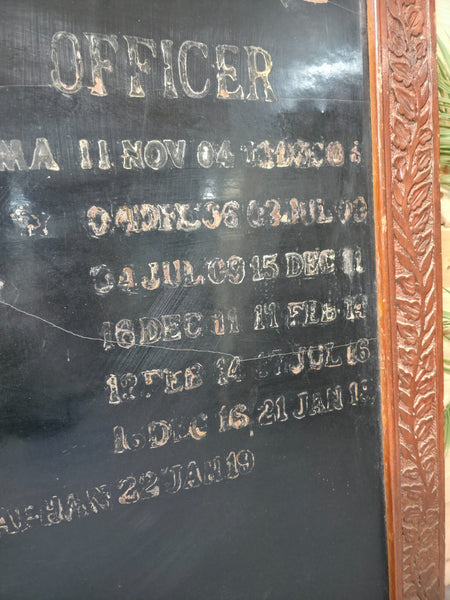 OFFICER
MA 11 NOV 04
04 DEC 06 03 JUL 09
04 JUL 09 15 DEC 11
16 DEC 11 11 FEB 14
12 FEB 14 17 JUL 16
DEC 16 21 JAN
22 JAN 19